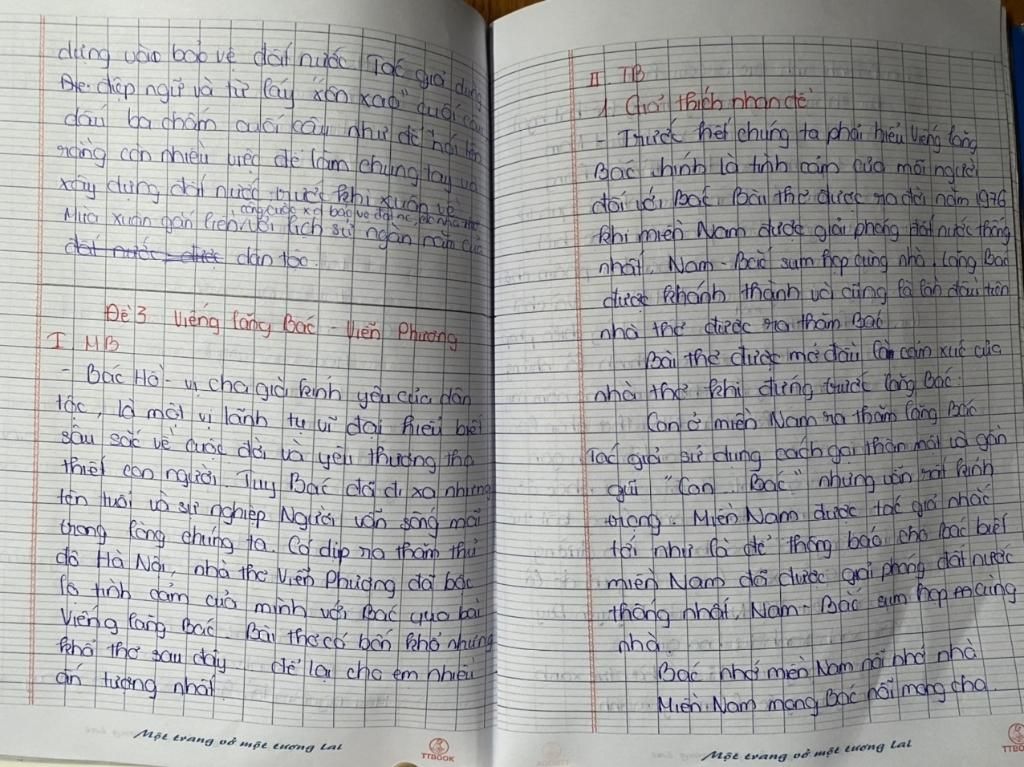 dựng vào bảo vệ đất nước. Tác giả dùng
điệp ngữ và từ láy "xôn xao" cuối câu
dấu ba chấm cuối câu như để nói lên
rằng còn nhiều việc để làm chung tay và
xây dựng đất nước trước khi xuân về
công cuộc xd bảo vệ đất nc
Mùa xuân gắn liền với lịch sử ngàn năm của
đất nước được dân tộc.
Đề 3 Viếng lăng Bác - Viễn Phương
I MB
- Bác Hồ - vị cha già kính yêu của dân
tộc, là một vị lãnh tụ vĩ đại hiểu biết
sâu sắc về cuộc đời và yêu thương tha
thiết con người. Tuy Bác đã đi xa nhưng
tên tuổi và sự nghiệp Người vẫn sống mãi
trong lòng chúng ta. Có dịp ra thăm thủ
đô Hà Nội, nhà thơ Viễn Phương đã bộc
lộ tình cảm của mình với Bác qua bài
Viếng lăng Bác. Bài thơ có bốn khổ nhưng
khổ thơ sau đây để lại cho em nhiều
ấn tượng nhất
Một trang vở một tương lai
TTBOOK
II TB
1. Giải thích nhan đề
- Trước hết chúng ta phải hiểu Viếng lăng
Bác chính là tình cảm của mỗi người
đối với Bác. Bài thơ được ra đời năm 1976
khi miền Nam được giải phóng đất nước thống
nhất, Nam - Bắc sum họp cùng nhà. Lăng Bác
được khánh thành và cũng là lần đầu tiên
nhà thơ được ra thăm Bác.
Bài thơ được mở đầu là cảm xúc của
nhà thơ khi đứng trước lăng Bác.
Con ở miền Nam ra thăm lăng Bác
Tác giả sử dụng cách gọi thân mật và gần
gũi "Con Bác" nhưng vẫn rất kính
trọng. Miền Nam được tác giả nhắc
tới như là để thông báo cho Bác biết
miền Nam đã được giải phóng đất nước
thống nhất, Nam - Bắc sum họp cùng
nhà.
Bác nhớ miền Nam nỗi nhớ nhà
Miền Nam mong Bác nỗi mong cha.
Một trang vở một tương lai